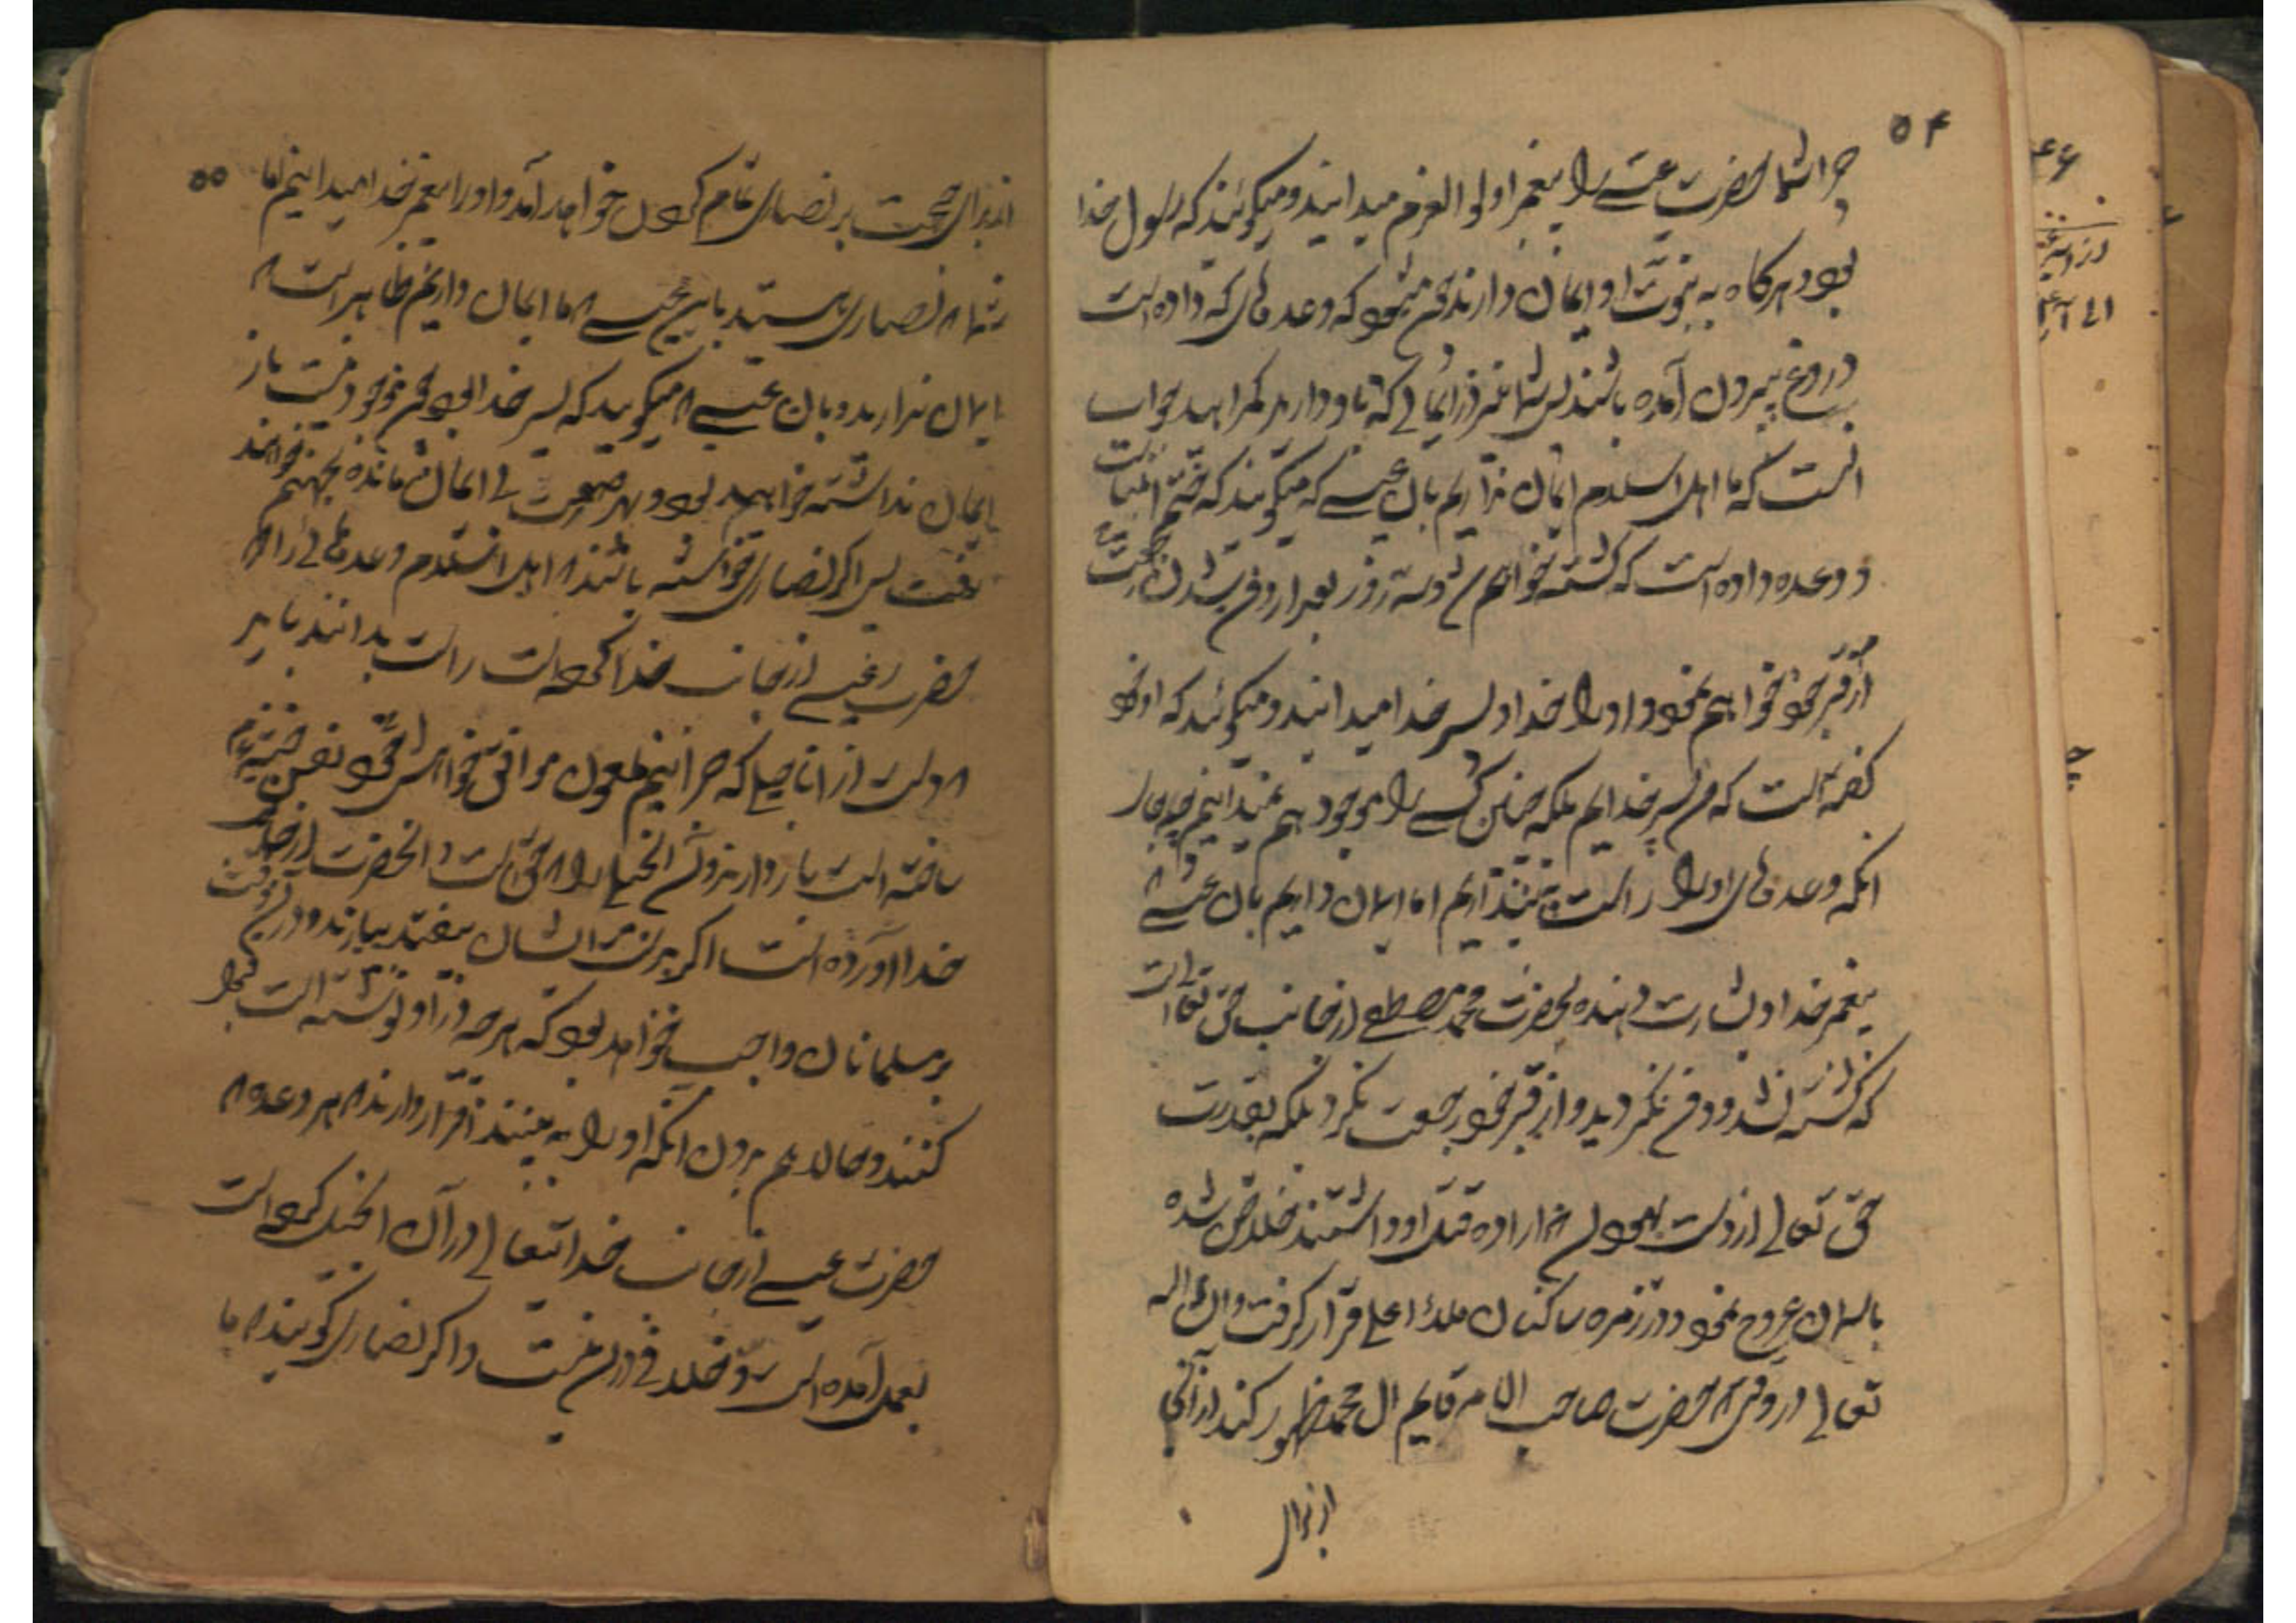 ۵۴
چرا شما حضرت عیسے را پیغمبر اولو العزم میدانید و میکوئید که رسول خدا
بود هرکاه به نبوت او ایمان دارند که وعده های که داده است
دروغ بیرون آمده باشند پس شما نیز در ایمانی که باو دارید کمراهید جواب
انست که ما اهل اسلام ایمان نداریم بان عیسے که میکویند که
و وعده داده است که کشته خواهم شد و سه روز بعد از دفن شدن رجعت
از قبر خود خواهم نمود و او را خدا و پسر خدا میدانید و میکوئید که او خود
کفته است که من پسر خدایم بلکه چنین کسے را موجود هم نمیدانیم چه جای
انکه وعده های او را راست پنداریم اما ایمان داریم بان عیسے
پیغمبر خدا و بشارت دهنده بحضرت محمد مصطفے از جانب حق تعالی است
که کشته نشد و دفن نکردید و از قبر خود رجعت نکرد بلکه بقدرت
حق تعالے از دست یهود که اراده قتل او داشتند خلاص شده
باسمان عروج نمود و در زمره ساکنان ملاء اعلے قرار کرفت و ان شاء الله
تعالے در وقتی که حضرت صاحب الامر قایم ال محمد ظهور کند از آنجا
از برای
۵۵
از برای حجت بر نصاری تمام کردن خواهد آمد و او را پیغمبر خدا میدانیم اما
شما که نصاری هستید باین عیسے که ما ایمان داریم ظاهر است که
ایمان ندارید و بان عیسے که میکویید که پسر خدا بود چون موجود نیست باز
ایمان نداشته خواهید بود و بهر صورت بے ایمان مانده بجهنم خواهند
رفت پس اکر نصاری خواسته باشند که اهل اسلام وعده هائے را که
حضرت عیسے از جانب خدا کرده است راست بدانند باید
که دست از اناجیلے که جرانیم ملعون موافق خواهش نفس خبیثه
ساخته است باز دارند و آن انجیل را که حق است و انحضرت از جانب
خدا آورده است اکر بدست ایشان بیفتد بیارند و در آن وقت
بر مسلمانان واجب خواهد بود که هر چه در او نوشته است قبول
کنند و حالا هم بدون انکه او را به بینند اقرار دارند که هر وعده که
حضرت عیسے از جانب خدایتعالے در آن انجیل کرده است
بعمل آمده است و خلافے در ان نیست و اکر نصاری کویند که ما